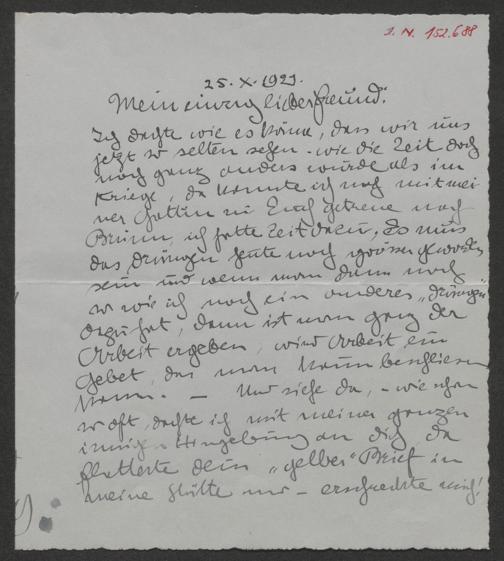 I. N. 152.688
25. X. 1929.
Mein einzig lieber Freund!
Ich dachte wie es käme, dass wir uns
jetzt so selten sehen - wie die Zeit doch
noch ganz anders wurde als im
Kriege, da konnte ich noch mit mei
ner Gattin zu Euch getrene nach
Brünn, ich hatte Zeit dazu, Es muss
das drängen heute noch grösser geworden
sein und wenn man dann noch
so wie ich noch ein anderes „drängen"
dazu hat, dann ist man ganz der
Arbeit ergeben, wird Arbeit ein
Gebet, das man kaum beschliessen
kann. — Und siehe da, - wie schon
so oft, dachte ich mit meiner ganzen
innigen Hingebung an dich, da
flatterte dein „gelber" Brief in
meine Hütte und - erschreckte mich!